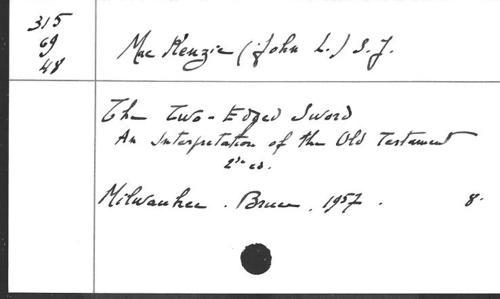 315
69
48
Mac Kenzie (John L.) S.J.
The Two-Edged Sword
An Interpretation of the Old Testament
2e ed.
Milwaukee. Bruce, 1957. 8.